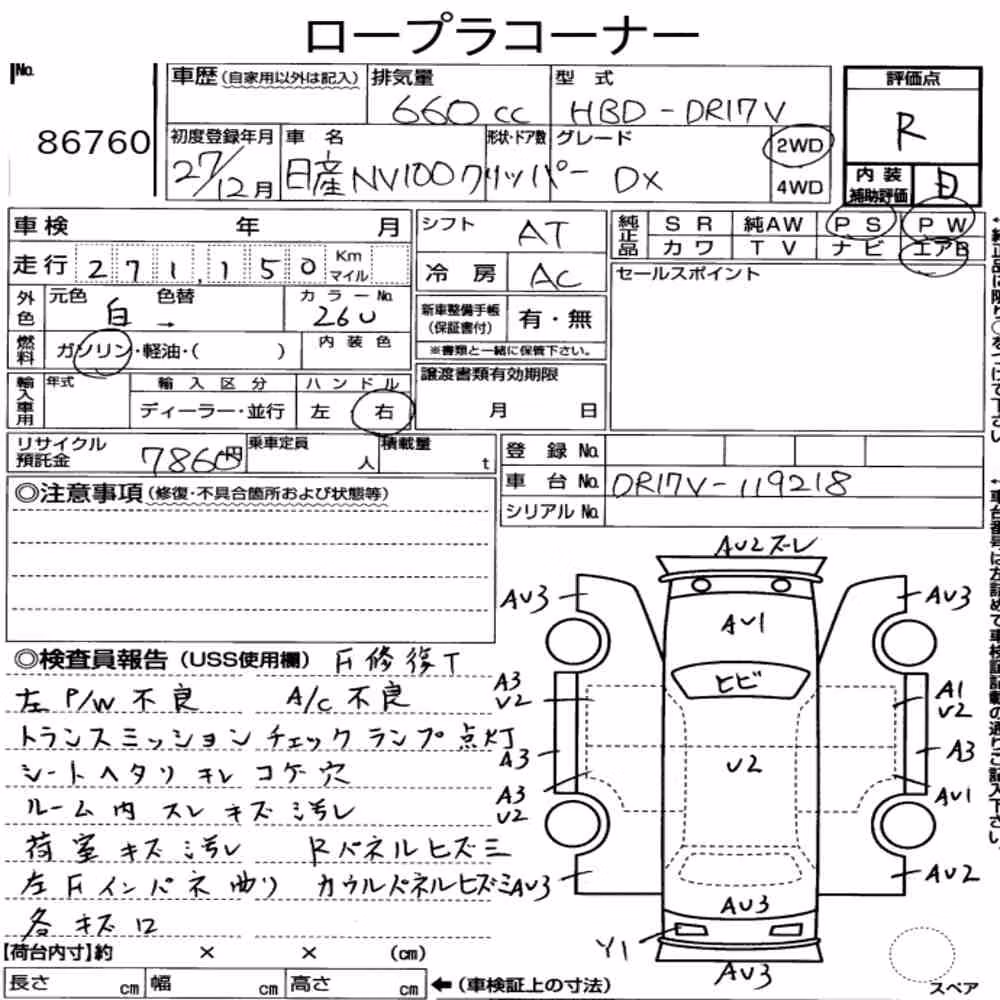 ロープラコーナー
No.
86760
車歴(自家用以外は記入)
排気量
660 cc
型式
HBD-DR17V
評価点
R
初度登録年月
27/12月
車名
日産 NV100クリッパー
形状・ドア数
グレード
DX
2WD
4WD
内装
補助評価
車検 年 月
走行 271,150 Km マイル
シフト AT
冷房 AC
純正品
SR 純AW PS PW
カワ TV ナビ エアB
セールスポイント
外色
元色 白 色替 →
カラーNo. 26U
新車整備手帳
(保証書付)
有・無
※書類と一緒に保管下さい。
燃料
ガソリン・軽油・( )
内装色
輸入車用
年式
輸入区分
ディーラー・並行
ハンドル
左 右
譲渡書類有効期限
月 日
リサイクル
預託金
7860円
乗車定員
人
積載量
t
登録No.
車台No. DR17V-119218
シリアルNo.
◎注意事項(修復・不具合箇所および状態等)
◎検査員報告(USS使用欄) F修復T
左P/W不良 A/C不良
トランスミッションチェックランプ点灯
シートヘタリキレコゲ穴
ルーム内スレキズ汚レ
荷室キズ汚レ Rパネルヒズミ
左Fインパネ曲リ カウルパネルヒズミ
各キズロ
AU2ズーレ
AU3
AU3
AU1
ヒビ
A3
U2
A1
U2
A3
A3
U2
A3
U2
AU1
AU3
AU2
AU3
Y1
AU3
スペア
【荷台内寸】約 × × (cm)
長さ cm 幅 cm 高さ cm
←(車検証上の寸法)